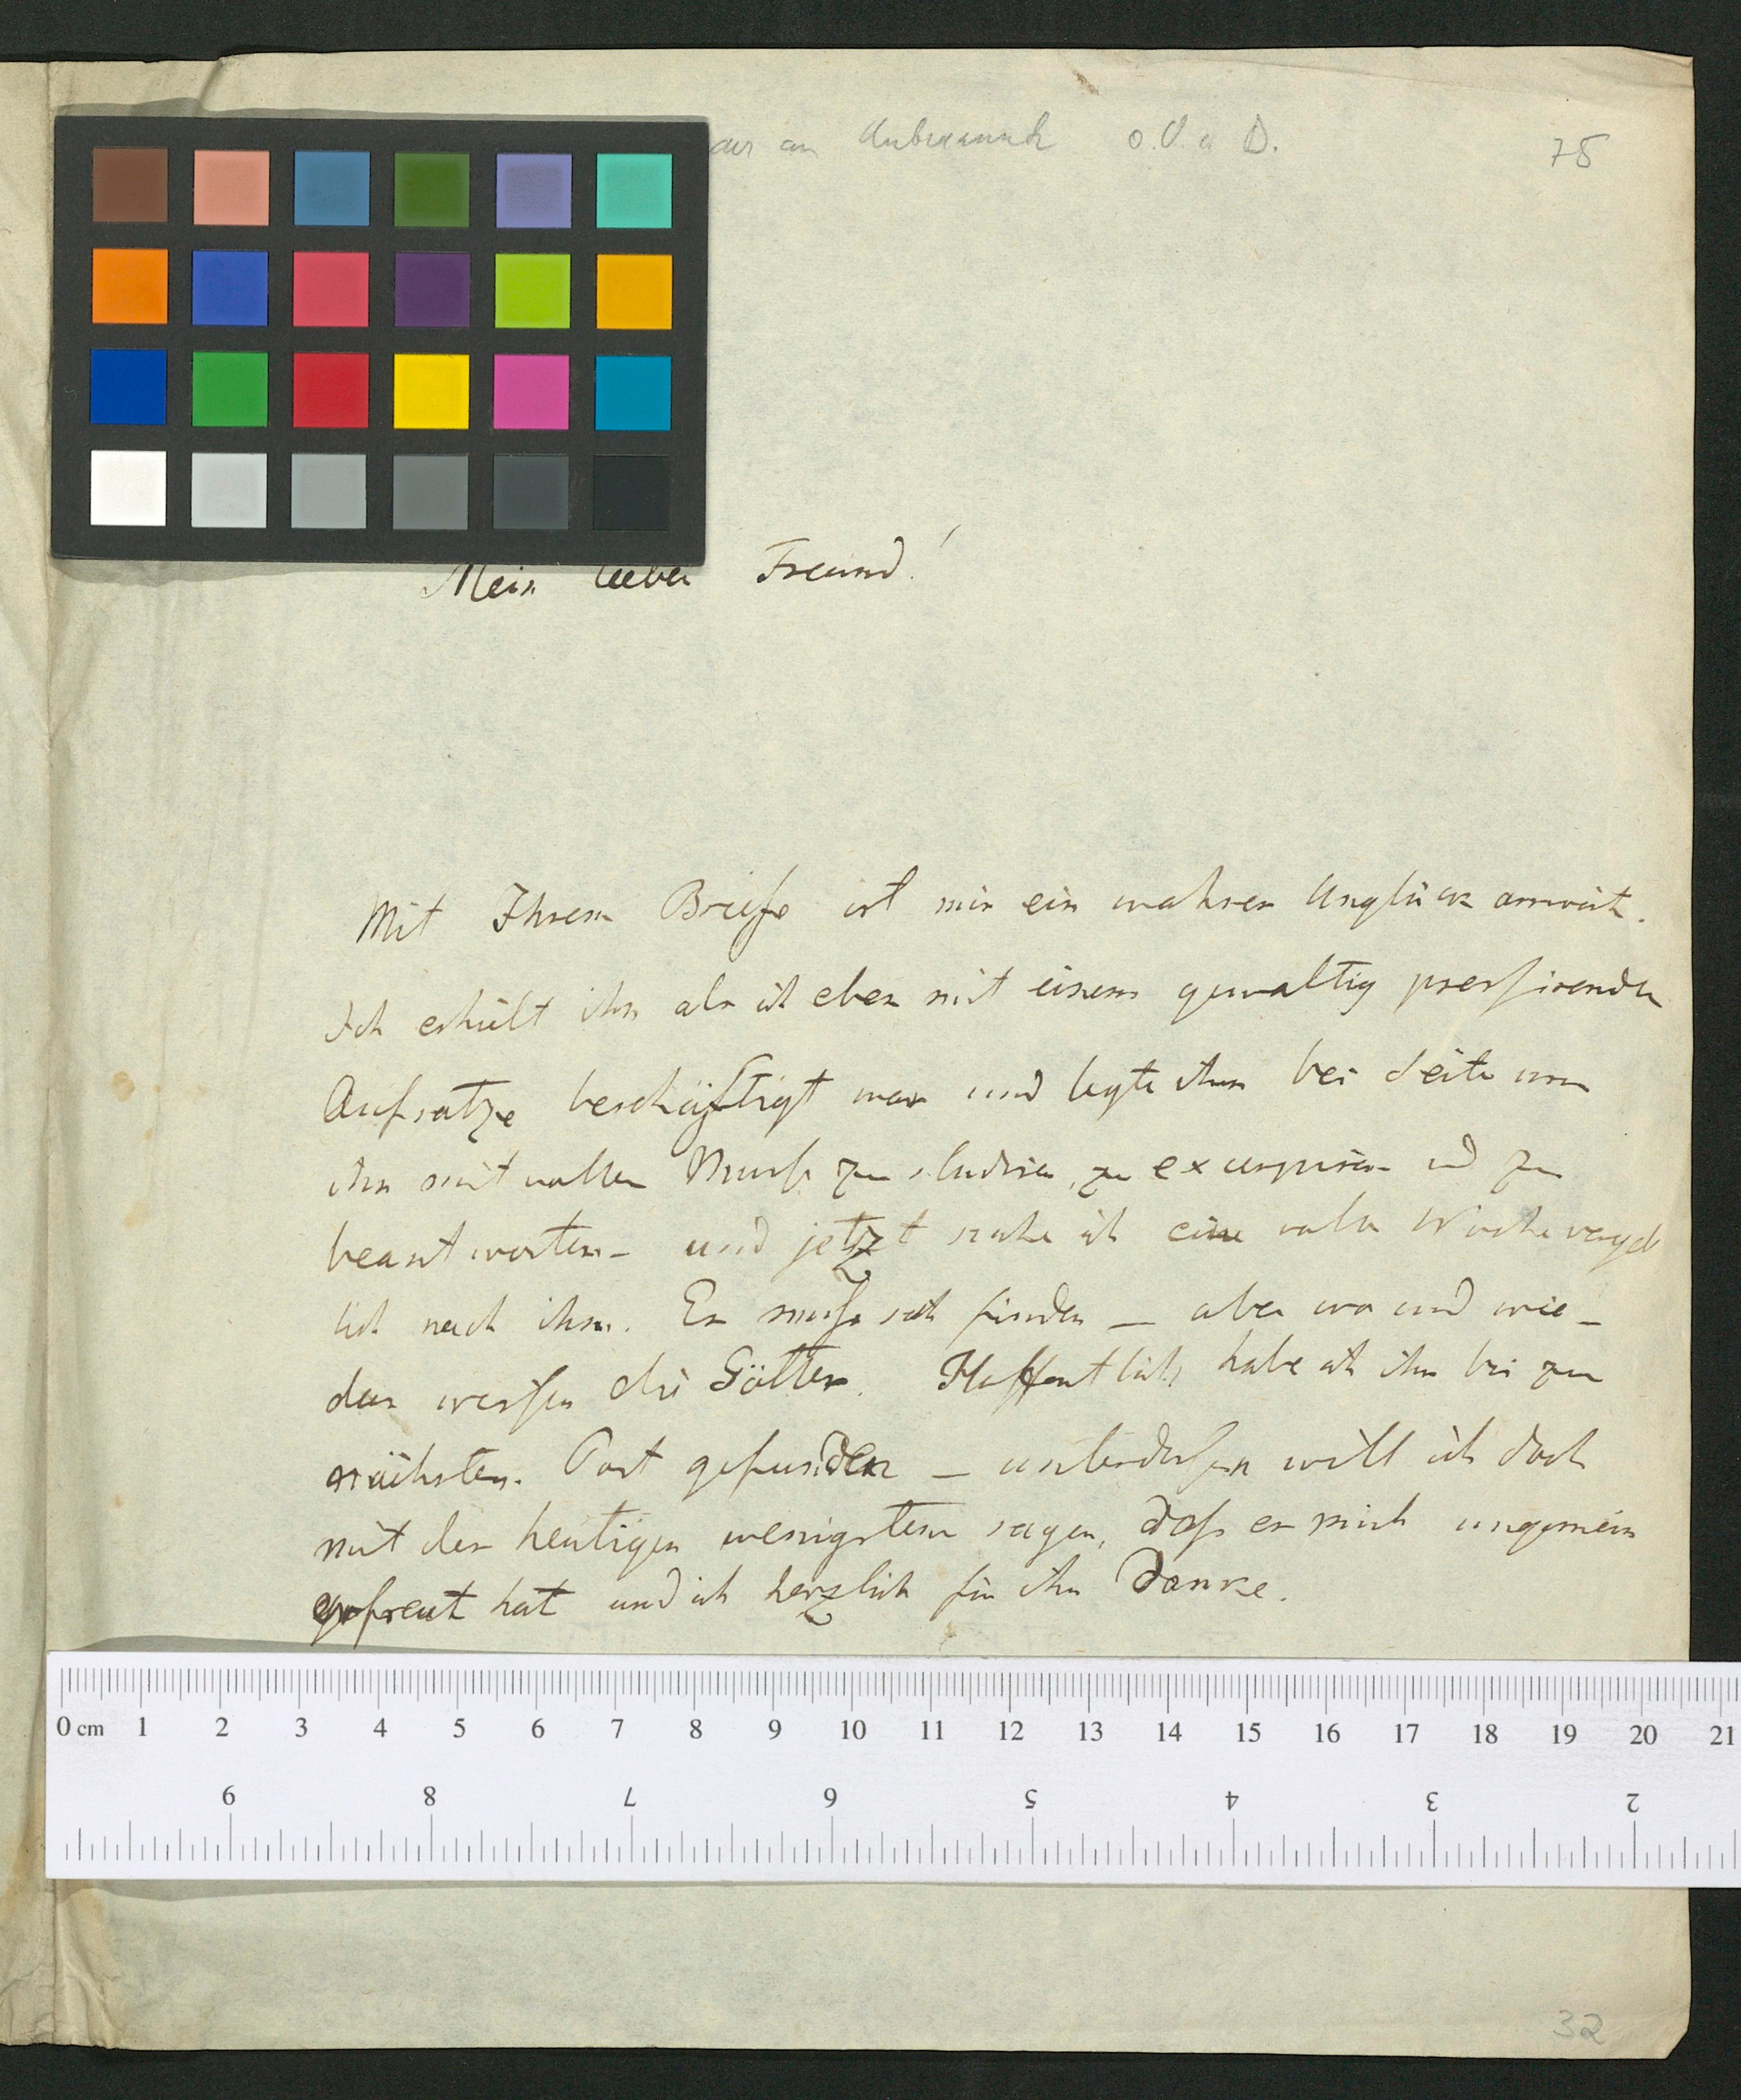 an Unbekannt o.O. u D. 75
Mein lieber Freund!
Mit Ihrem Briefe ist mir ein wahres Unglück arrivirt.
Ich erhielt ihn als ich eben mit einem gewaltig pressirenden
Aufsatze beschäftigt war und legte ihn bei Seite um
ihn mit voller Musse zu studiren, zu excerpiren und zu
beantworten – und jetzt suche ich eine volle Woche vergeb
lich nach ihm. Er muss sich finden – aber wo und wie –
das wissen die Götter. Hoffentlich habe ich ihn bis zur
nächsten Post gefunden – unterdessen will ich doch
mit der heutigen wenigstens sagen, dass er mich ungemein
gefreut hat und ich herzlich für ihn danke.
0 cm 1 2 3 4 5 6 7 8 9 10 11 12 13 14 15 16 17 18 19 20 21
9 8 7 6 5 4 3 2
32